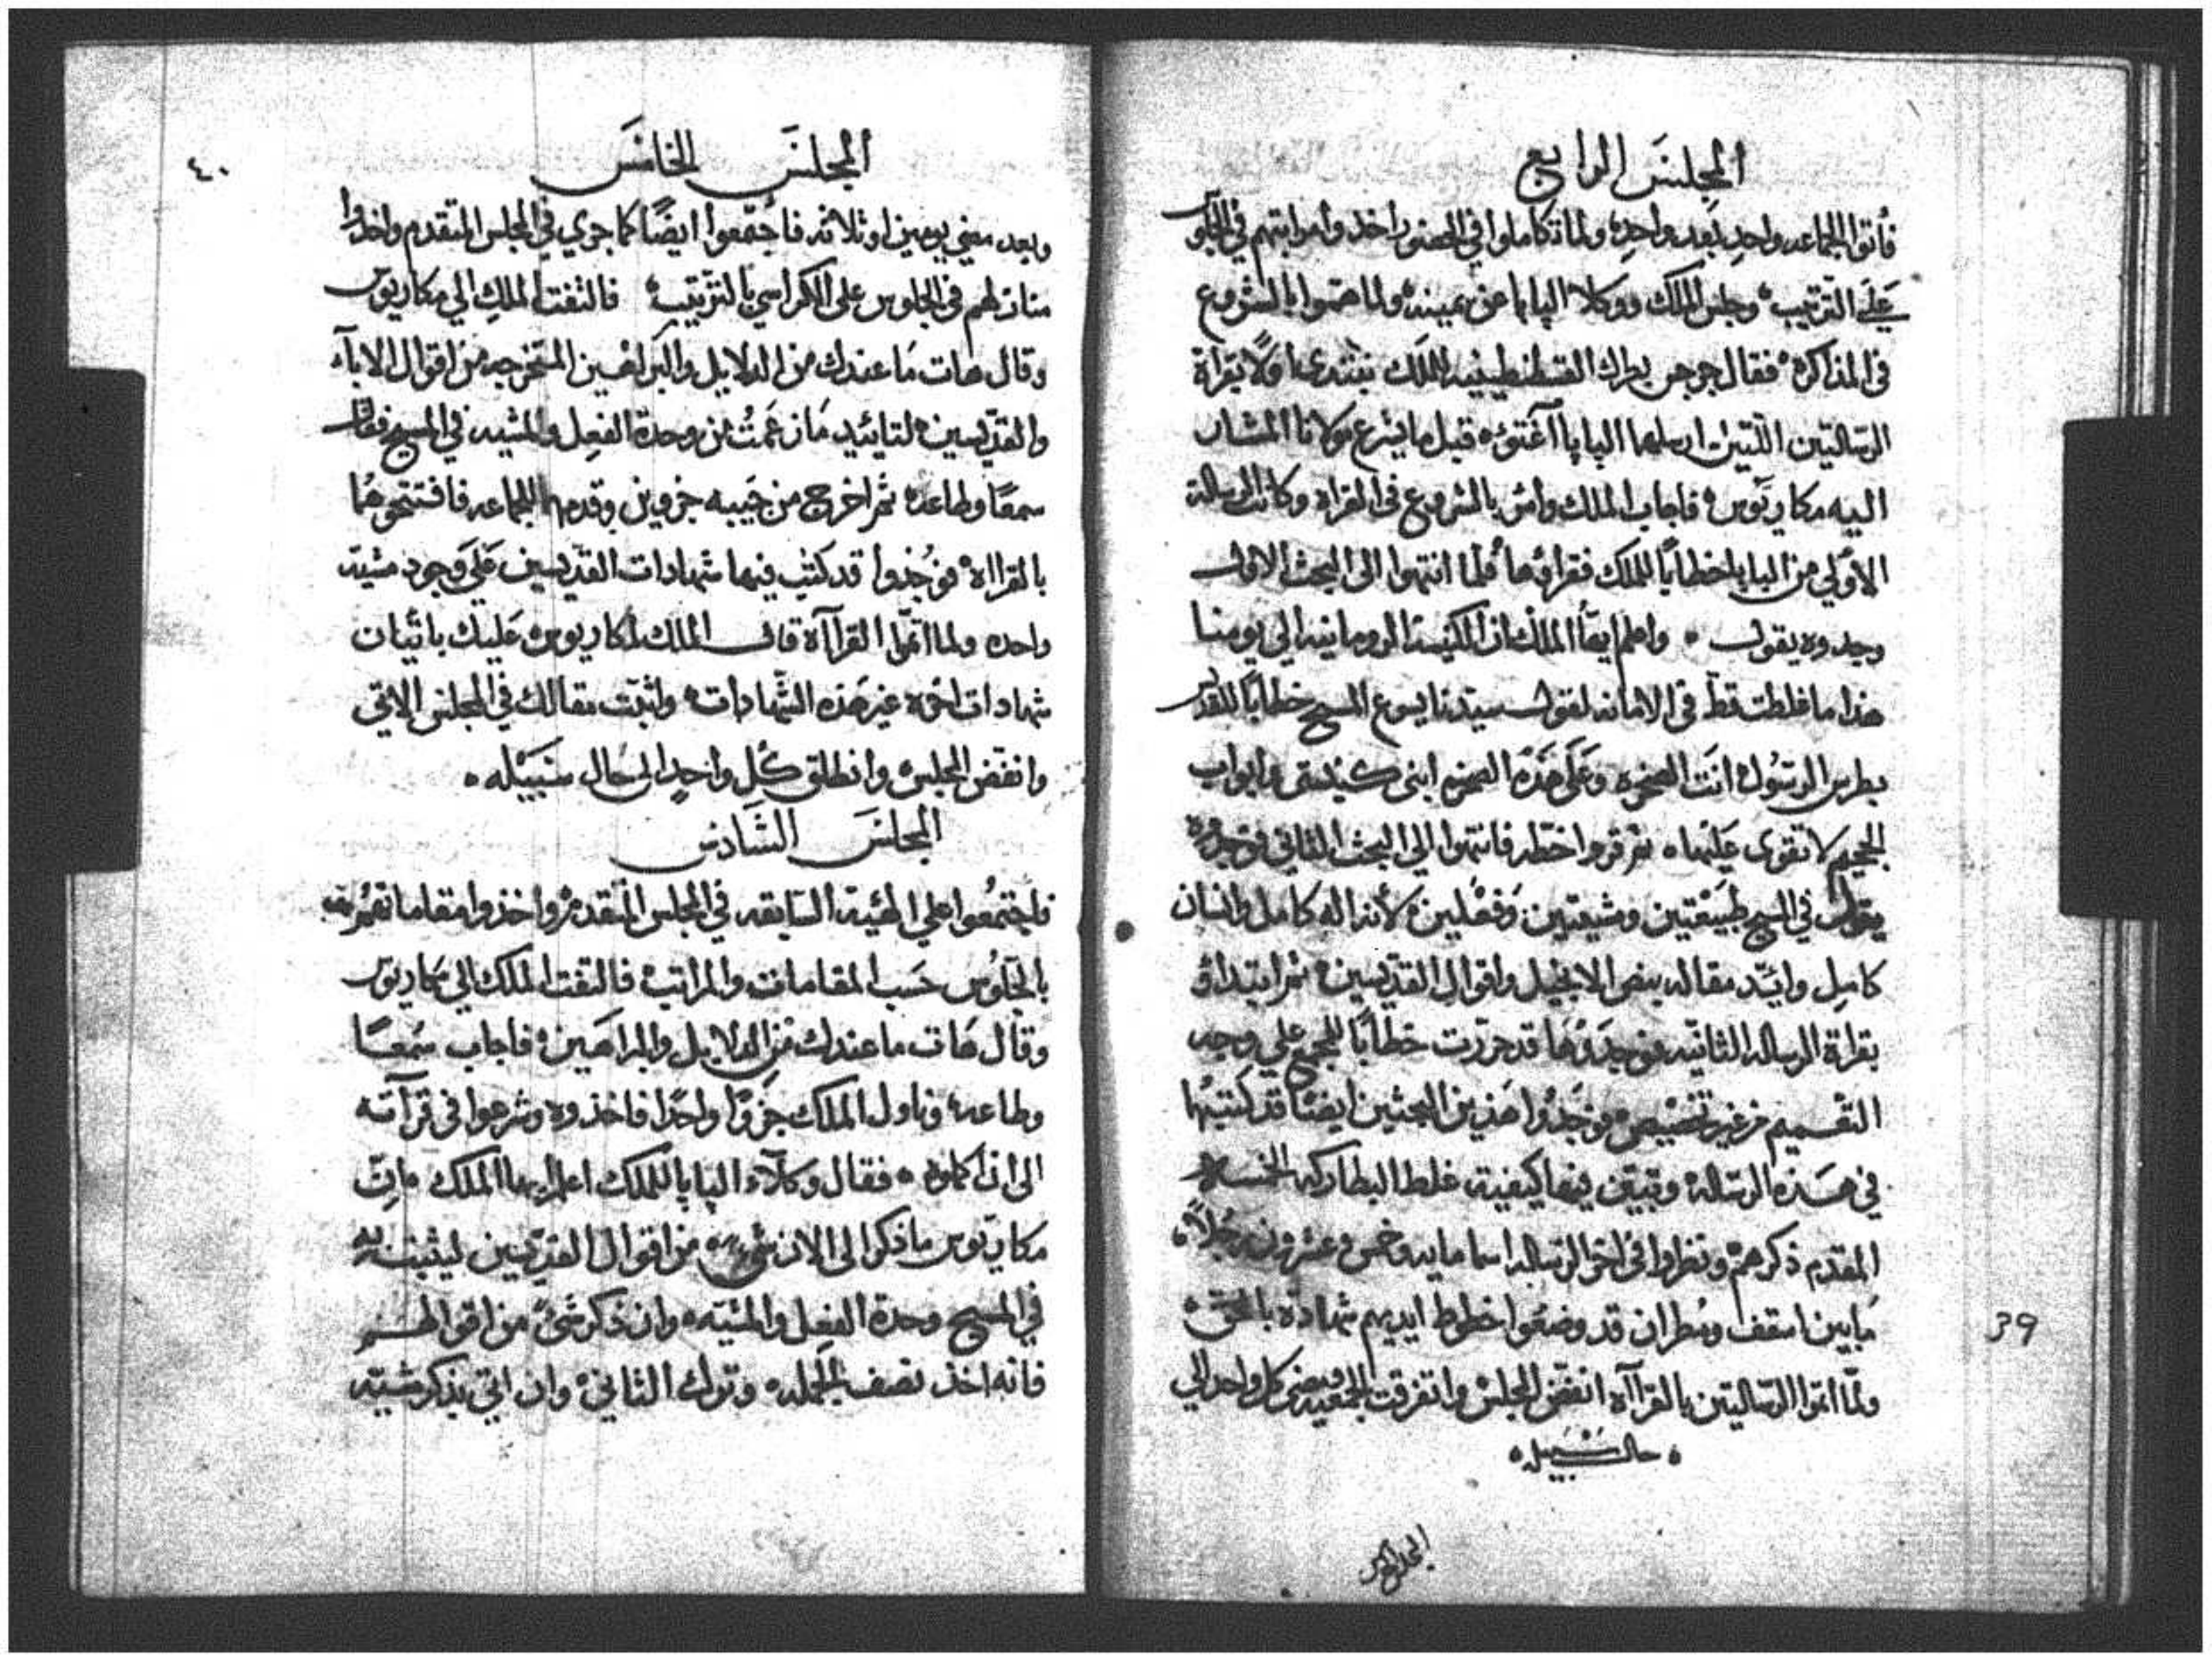 المجلس الرابع
فأتوا الجماعه واحدٍ بعد واحدٍ ولما تكاملوا في الحضور اخذوا مراتبهم في الجلوس
عَلَى الترتيب وجلس الملك ووكلا البابا عن يمينه ولما هموا بالشروع
في المذاكره فقال جرجس بطرك القسطنطينيه للملك نبتدى اولًا بقراة
الرسالتين اللتين ارسلهما البابا آغتوه قبل ما يشرع مولانا المشار
اليه مكاريوس فاجاب الملك وامر بالشروع في القراه وكانت الرساله
الأولي من البابا خطابًا للملك فقراوها فلما انتهوا الى البحث الاول
وجدوه يقول واعلم ايها الملك ان الكنيسة الرومانيه الي يومنا
هذا ما غلطت قط في الامانه لقول سيدنا يسوع المسيح خطابًا للقديس
بطرس الرسول انت الصخره وعَلَى هذه الصخره ابنى كنيستى وابواب
الجحيم لا تقوى عليها ثم قروا خطه فانتهوا الي البحث الثاني فوجدوه
يقول في المسيح طبيعتين ومشيتين وفعلين لأنه اله كامل وانسان
كامل وايّد مقاله بنص الانجيل واقوال القديسين ثم ابتداو
بقراة الرساله الثانيه فوجدوها قد حررت خطابًا للمجمع علي وجه
التقسيم من غير تخصيص فوجدوا هذين البحثين ايضًا قد كتبتهما
في هذه الرساله وتبين فيها كيفية غلط البطاركه الخمسه
المقدم ذكرهم ونظروا في اخر الرساله اسما مايه وخمس وعشرون رجلًا
مابين اسقف ومطران قد وضعوا خطوط ايديهم شهادة بالحق
ولمّا اتموا الرسالتين بالقراآه انفض المجلس واتفرقت الجمعيه ومضى كل واحد الي
حال سبيله
المجلس الخامس
39
٤٠
المجلس الخامس
وبعد مضي يومين او ثلاثه فاجتمعوا ايضًا كما جري في المجلس المتقدم واخذوا
منازلهم في الجلوس على الكراسي بالترتيب فالتفت الملك الي مكاريوس
وقال هات مَا عندك من الدلايل والبراهين المتخرجه من اقوال الاباء
والقديسين لتايئيد مَا زعمتُ من وحدة الفعل والمشيه في المسيح فقال
سمعًا وطاعه ثم اخرج من جيبه جزوين وقدمهما للجماعه فافتتحوهُما
بالقراه فوُجدوا قد كتب فيهما شهادات القديسين عَلَى وجود مشية
واحده ولما اتمّوا القراآة قال الملك لمكاريوس عَليك باتيان
شهادات اخره غير هذه الشهادات واثبت مقالك في المجلس الاتي
وانفض المجلس وانطلق كل واحدٍ الى حال سَبيله
المجلس السَادس
فاجتمعوا علي الهيئة السَابقه في المجلس المتقدم واخذوا مقاماتهم
بالجلوس حَسب المقامات والمراتب فالتفت الملك الي مكاريوس
وقال هَات ما عندك من الدلايل والبراهين فاجاب سَمعًا
وطاعه وناول الملك جزوًا واحدًا فاخذوه وشرعوا في قرآته
الى ان اكملوه فقال وكلاء البابا للملك اعلم ايها الملك ان
مكاريوس ما ذكر الى الان شي من اقوال القديسين ليثبت به
في المسيح وحدة الفعل والمشيّه وان ذكر شئ من اقوالهم
فانه اخذ نصف الجمله وترك الثاني وان اتي بذكر مشية